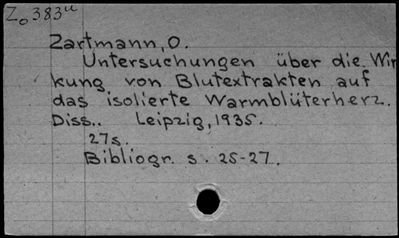 Zo383u
Zartmann, O.
Untersuchungen über die Wir
kung von Blutextrakten auf
das isolierte Warmblüterherz.
Diss.. Leipzig, 1935.
27s.
Bibliogr. s. 25-27.